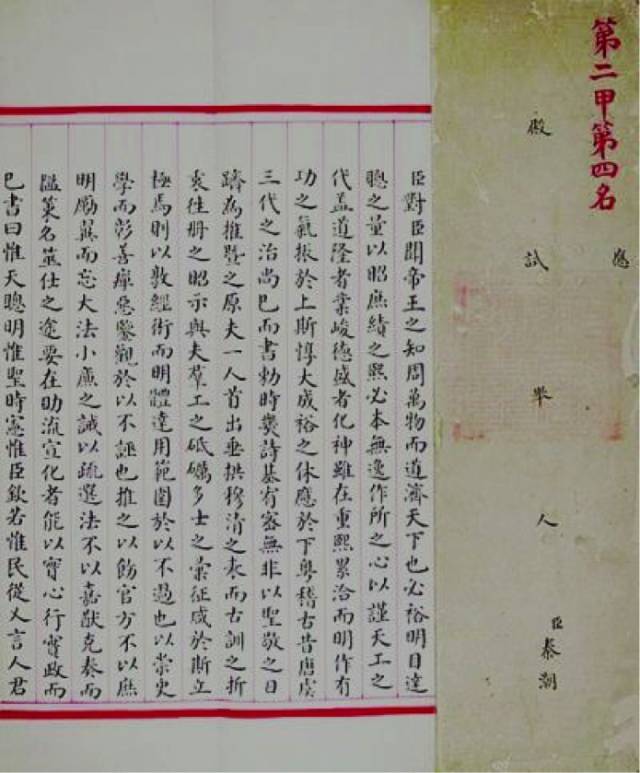 第二甲第四名
應
殿試舉人臣秦潮
臣對臣聞帝王之知周萬物而道濟天下也必裕明目達
聰之量以昭庶績之熙必本無逸作所之心以謹天工之
代盖道隆者業峻德盛者化神雖在重熙累洽而明作有
功之氣振於上斯惇大成裕之休應於下粤稽古昔唐虞
三代之治尚已而書勑時幾詩基宥密無非以聖敬之日
躋為推暨之原夫一人首出垂拱穆清之表而古訓之折
衷往册之昭示與夫羣工之砥礪多士之彚征咸於斯立
極焉則以敦經術而明體達用範圍於以不過也以崇史
學而彰善癉惡鑒觀於以不誣也推之以飭官方不以庶
明勵翼而忘大法小廉之誡以疏選法不以嘉猷克奏而
隘策名筮仕之途要在助流宣化者能以實心行實政而
已書曰惟天聰明惟聖時憲惟臣欽若惟民從乂言人君